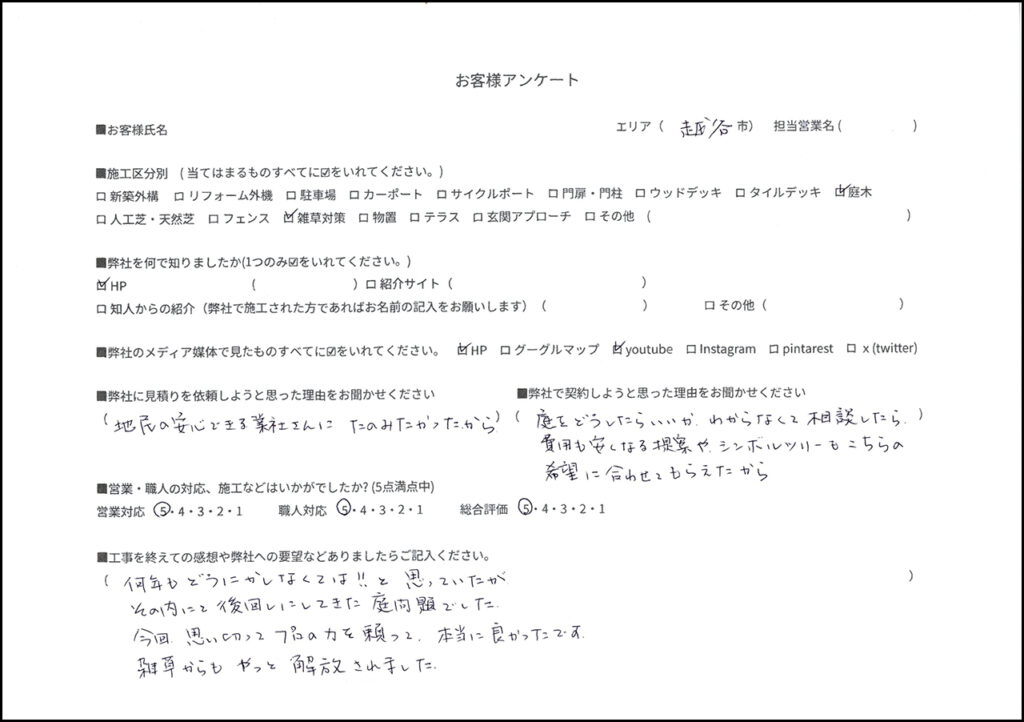 お客様アンケート
■お客様氏名 エリア（ 越谷 市） 担当営業名（ ）
■施工区分別 （当てはまるものすべてに☑をいれてください。）
□ 新築外構 □ リフォーム外機 □ 駐車場 □ カーポート □ サイクルポート □ 門扉・門柱 □ ウッドデッキ □ タイルデッキ ☑ 庭木
□ 人工芝・天然芝 □ フェンス ☑ 雑草対策 □ 物置 □ テラス □ 玄関アプローチ □ その他 （ ）
■弊社を何で知りましたか(1つのみ☑をいれてください。)
☑ HP （ ）□ 紹介サイト（ ）
□ 知人からの紹介（弊社で施工された方であればお名前の記入をお願いします）（ ） □ その他（ ）
■弊社のメディア媒体で見たものすべてに☑をいれてください。 ☑ HP □ グーグルマップ ☑ youtube □ Instagram □ pintarest □ x (twitter)
■弊社に見積りを依頼しようと思った理由をお聞かせください
（地民の安心できる業社さんに たのみたかったから）
■弊社で契約しようと思った理由をお聞かせください
（庭をどうしたらいいか、わからなくて相談したら、）
費用も安くなる提案や、シンボルツリーもこちらの
希望に合わせてもらえたから
■営業・職人の対応、施工などはいかがでしたか? (5点満点中)
営業対応 ⑤・4・3・2・1 職人対応 ⑤・4・3・2・1 総合評価 ⑤・4・3・2・1
■工事を終えての感想や弊社への要望などありましたらご記入ください。
（ 何年もどうにかしなくては!! と 思っていたが ）
その内にと後回しにしてきた庭問題でした。
今回、思い切ってプロの力を頼って、本当に良かったです。
雑草からも やっと 解放されました。